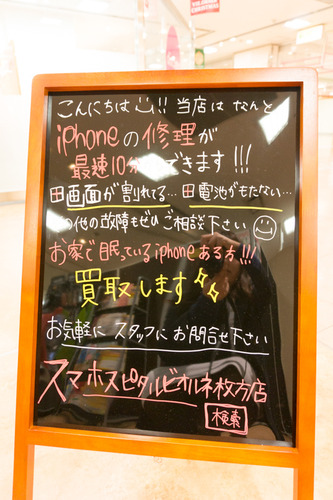 こんにちは!!! 当店は なんと
iPhoneの修理が
最速10分でできます!!!
田画面が割れてる… 田電池がもたない…
の他の故障もぜひご相談下さい
お家で眠っているiphoneある方!!!
買取します
お気軽に スタッフに お問合せ下さい
スマホスピタルビオルネ枚方店
検索